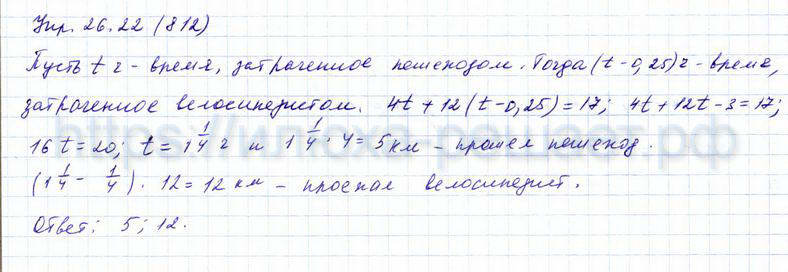 Упр. 26.22 (812)
Пусть t ч - время, затраченное пешеходом. Тогда (t - 0,25) ч - время,
затраченное велосипедистом. 4t + 12(t - 0,25) = 17; 4t + 12t - 3 = 17;
16t = 20; t = 1 1/4 ч и 1 1/4 · 4 = 5 км - прошел пешеход.
(1 1/4 - 1/4) · 12 = 12 км - проехал велосипедист.
Ответ: 5; 12.